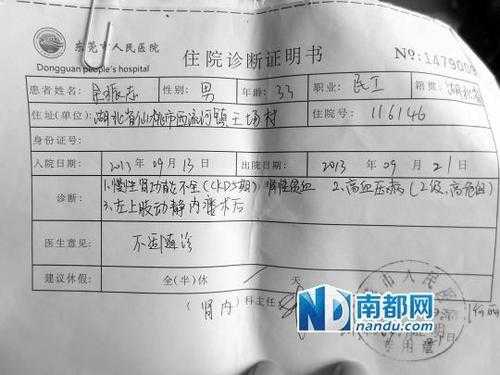 东莞市人民医院
Dongguan people's hospital
住院诊断证明书
No:147900
患者姓名: 振志 性别: 男 年龄: 33 职业: 民工 籍贯: 湖北
住址(单位): 湖北省仙桃市西流河镇王场村 住院号: 116146
身份证号:
入院日期: 2013 年 09 月 13 日 出院日期: 2013 年 09 月 21 日
诊断: 1.慢性肾功能不全(CKD5期) 肾性贫血 2.高血压病(2级,高危组)
3.左上肢动静内瘘术后
医生意见: 不适随诊
建议休假: 全(半)休 天
(肾内)科主任:
南都网
nandu.com
市人民医
专用章